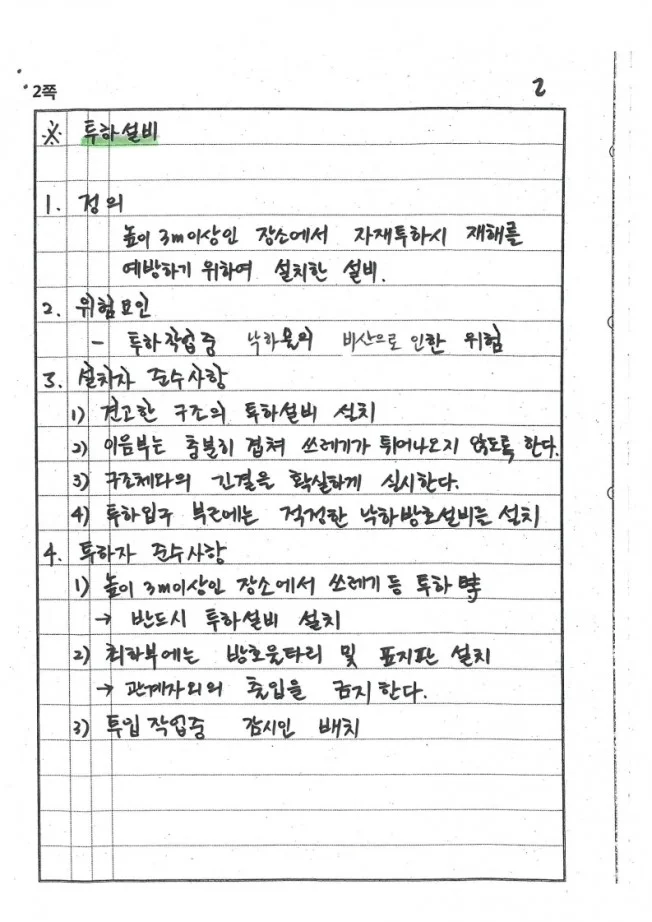 2쪽
2
※ 투하설비
1. 정의
높이 3m이상인 장소에서 자재투하시 재해를
예방하기 위하여 설치한 설비.
2. 위험요인
- 투하작업중 낙하물의 비산으로 인한 위험
3. 설치자 준수사항
1) 견고한 구조의 투하설비 설치
2) 이음부는 충분히 겹쳐 쓰레기가 튀어나오지 않도록 한다.
3) 구조체와의 긴결을 확실하게 실시한다.
4) 투하입구 부근에는 적정한 낙하방호설비를 설치
4. 투하자 준수사항
1) 높이 3m이상인 장소에서 쓰레기 등 투하 時
→ 반드시 투하설비 설치
2) 최하부에는 방호울타리 및 표지판 설치
→ 관계자외의 출입을 금지한다.
3) 투입작업중 감시인 배치